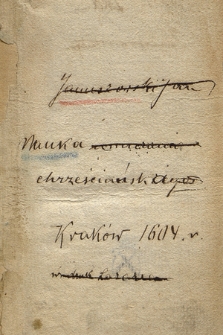 Januszowski Jan
Nauka umierania
chrześciańskiego
Kraków 1604. r.